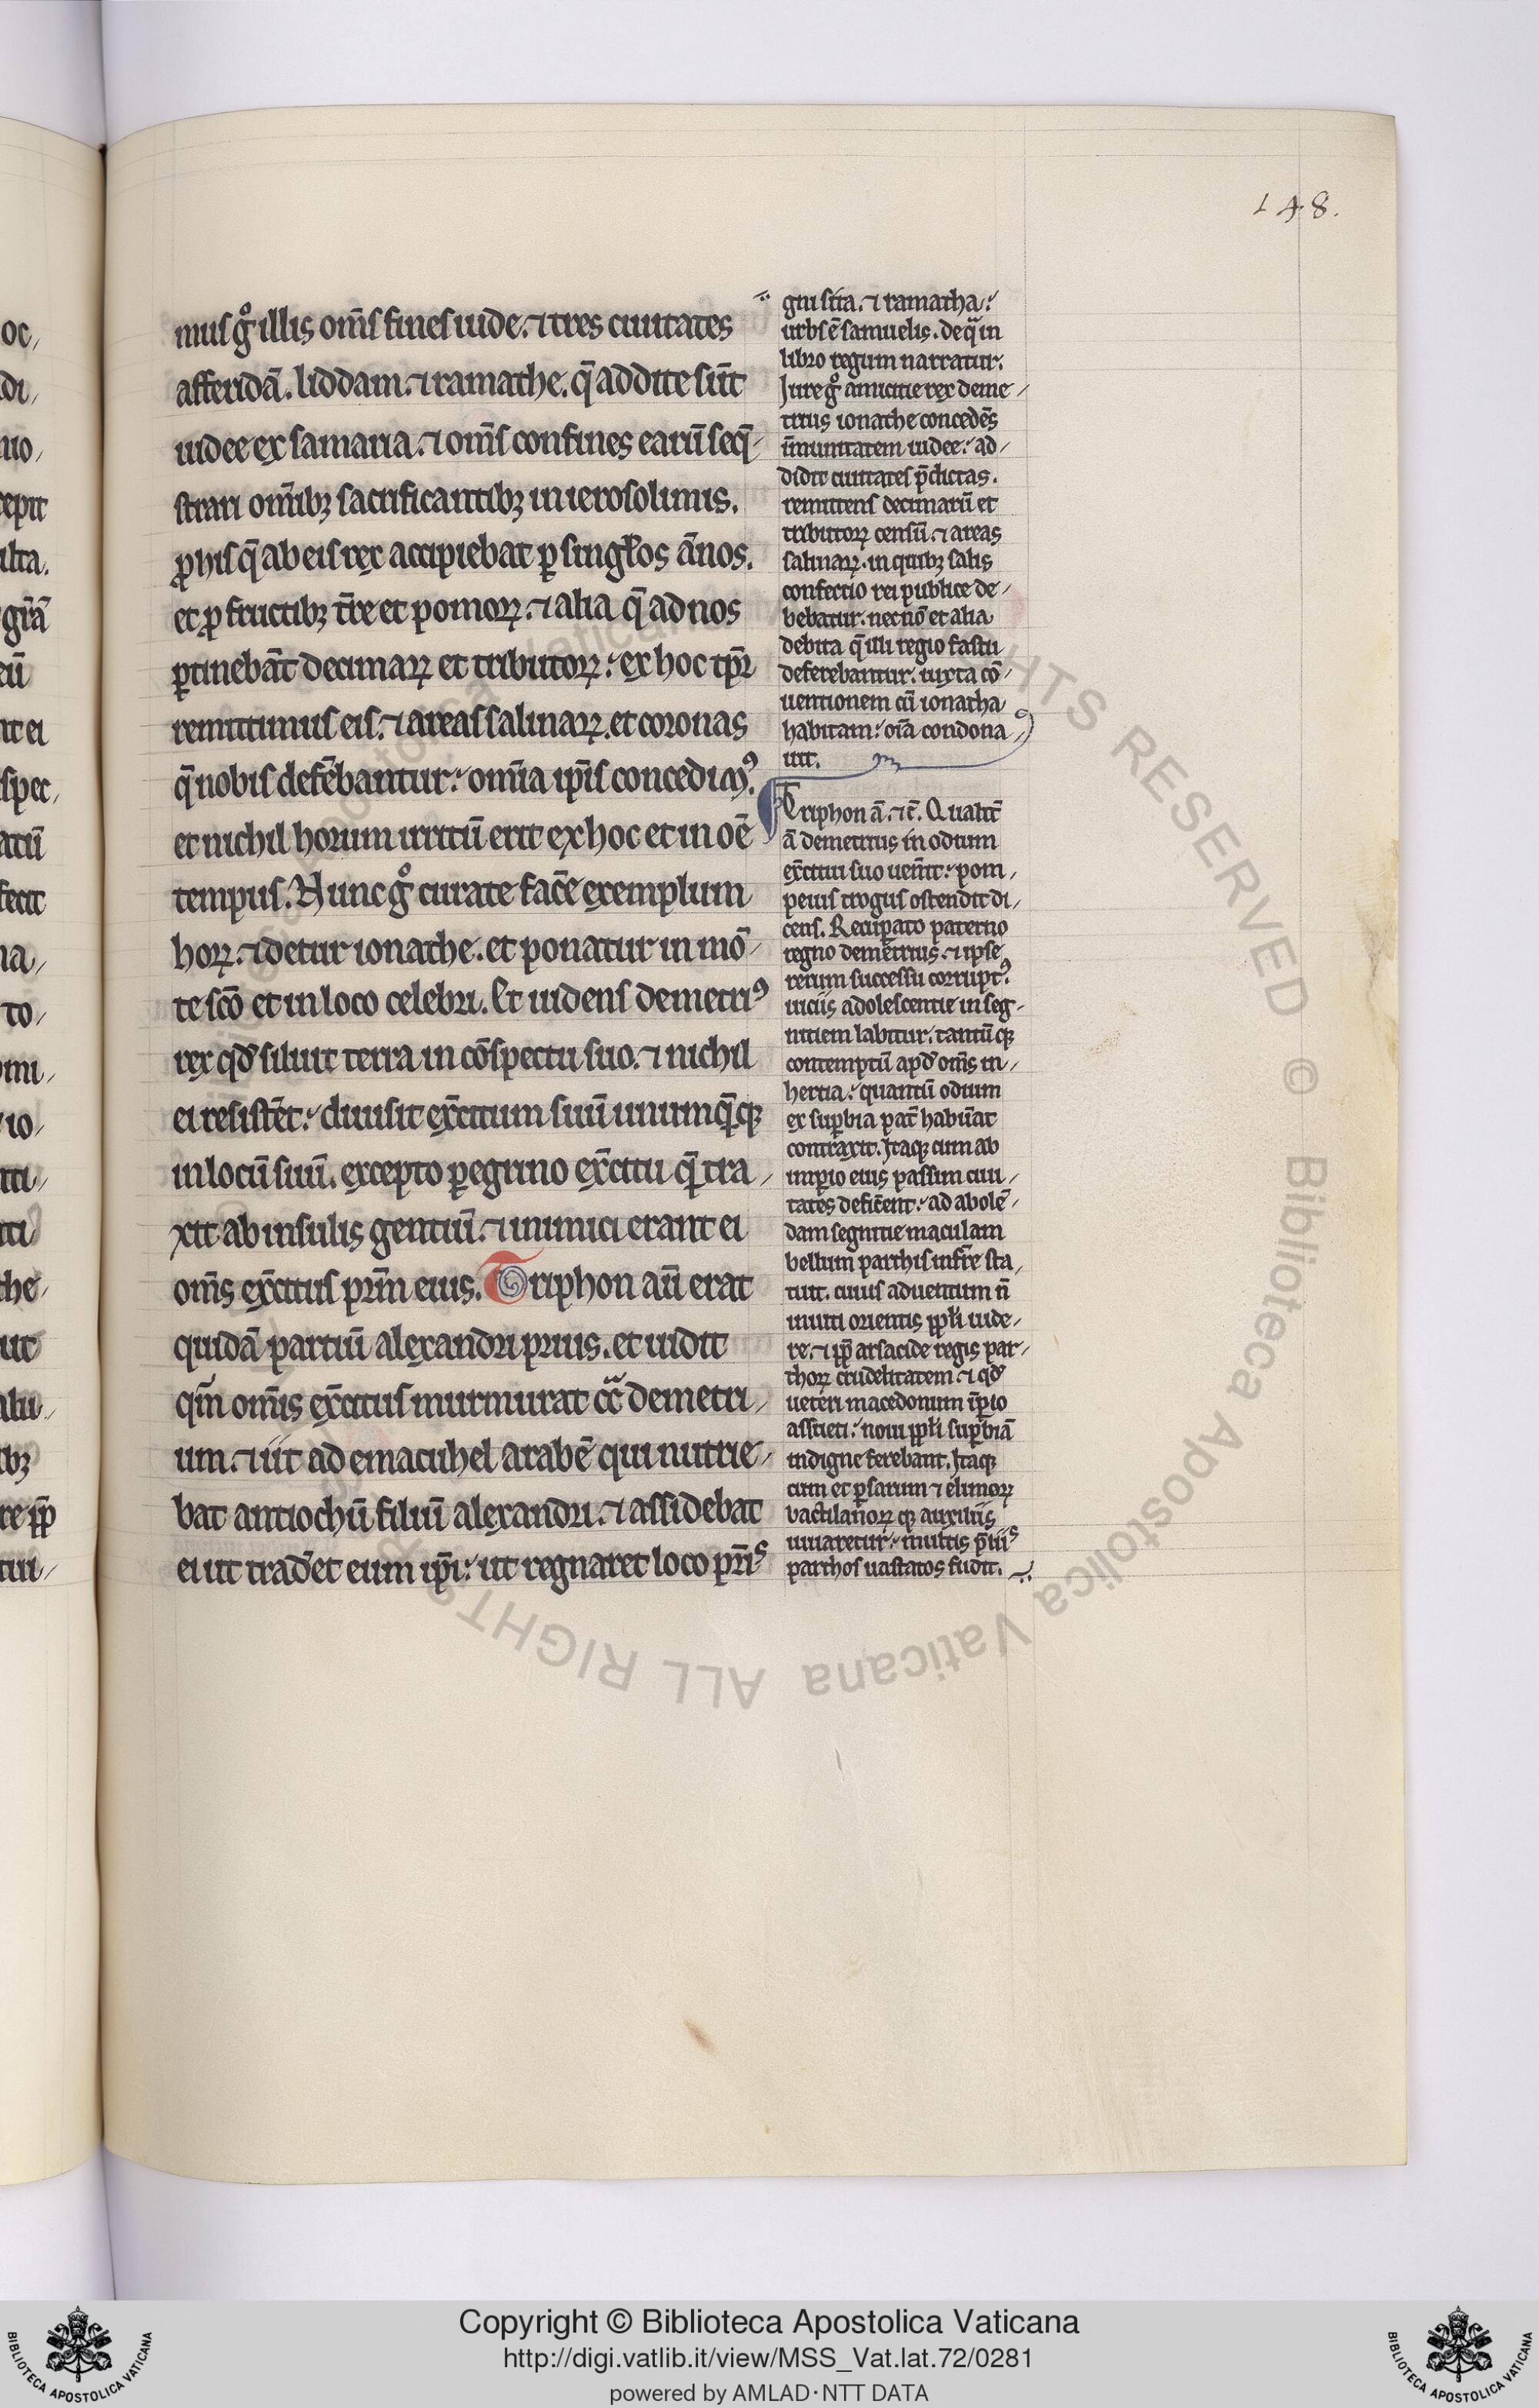 148.
mus gͦ illis om̄s fines iude. ⁊ tres ciuitates
afferidā. liddam. ⁊ ramathe. q̄ addite sūt
iudee ex samaria. ⁊ om̄s confines earū seq̄-
strari om̄ibꝫ sacrificantibꝫ in ierosolimis.
ꝓ his q̄ ab eis rex accipiebat ꝑ singlos ānos.
et ꝓ fructibꝫ t̄re et pomoꝝ. ⁊ alia q̄ ad nos
ꝑtinebāt decimaꝝ et tributoꝝ: ex hoc tp̄r
remittimus eis. ⁊ areas salinaꝝ. et coronas
q̄ nobis defēbantur: om̄ia ip̄is concedimꝰ.
et nichil horum irritū erit ex hoc et in oē
tempus. Nunc gͦ curate facē exemplum
hoꝝ. ⁊ detur ionathe. et ponatur in mō-
te sc̄o et in loco celebri. Et uidens demetriꝰ
rex qđ siluit terra in cōspectu suo. ⁊ nichil
ei resistēt: diuisit ex̄citum suū unumq̄mqꝫ
in locū suū. excepto ꝑegrino ex̄citu q̄ tra-
xit ab insulis gentiū. ⁊ inimici erant ei
om̄s ex̄citus pr̄m eius. Triphon aū erat
quidā partiū alexandri prius. et uidit
qm̄ om̄is ex̄citus murmurat cc̄ demetri-
um. ⁊ iit ad emacuhel arabē qui nutrie-
bat antiochū filiū alexandri. ⁊ assidebat
ei ut trad'et eum ip̄i: ut regnaret loco pr̄is
gni sita. ⁊ ramatha:
urbs ē samuelis. de qͣ in
libro regum narratur.
Jure gͦ amicitie rex deme-
trius ionathe concedēs
īmunitatem iudee: ad-
didit ciuitates p̄dictas.
remittens decimarū et
tributoꝝ censū. ⁊ areas
salinaꝝ. in quibꝫ salis
confectio rei publice de-
bebatur. nec nō et alia
debita q̄ illi regio fastu
deferebantur. iuxta cō-
uentionem cū ionatha
habitam: oīa condona-
uit.
Triphon ā. ⁊c̄. Qualit̄
ā demetrius in odium
ex̄citui suo uen̄it: pom-
peius trogus ostendit di-
cens. Recuꝑato paterno
regno demetrius. ⁊ ipse
rerum successu corruptꝰ
uiciis adolescentie in seg-
nitiem labitur. tantū qꝫ
contemptū apđ om̄s in-
hertia: quantū odium
ex suꝑbia pat̄ habūat
contraxit. Itaqꝫ cum ab
imꝑio eius passim ciui-
tates defic̄ent: ad abolē-
dam segnitie maculam
bellum parthis inferre sta-
tuit. cuius aduentum n̄
inuiti orientis pp̄li uide-
re. ⁊ pp̄ arsacide regis par-
thoꝝ crudelitatem. ⁊ qđ
ueteri macedonum īꝑio
assueti: noui pp̄li suꝑbiā
indigne ferebant. Itaqꝫ
cum et ꝑsarum ⁊ elimoꝝ
bactilanoꝝ qꝫ auxiliis
iuuaretur: multis p̄liis
parthos uastatos fudit.
Copyright © Biblioteca Apostolica Vaticana
http://digi.vatlib.it/view/MSS_Vat.lat.72/0281
powered by AMLAD·NTT DATA